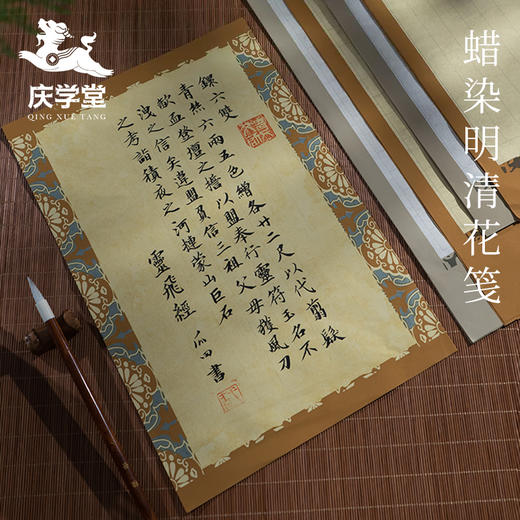 庆学堂
QING XUE TANG
蜡染明清花笺
鐶六雙
青絲六兩五色繒各廿二尺以代翦髮
歃血登壇之誓以盟奉行靈符玉名不
洩之信矣違盟負信三祖父母獲風刀
之考詣積夜之河揵蒙山巨石
靈飛經 書